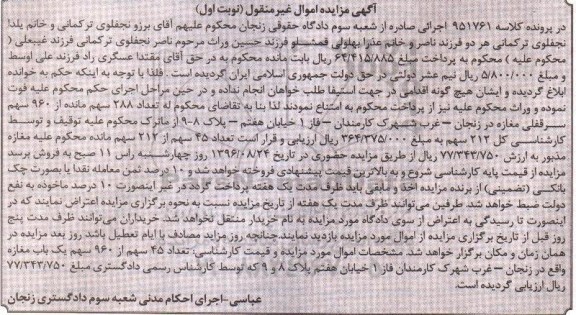 آگهی مزایده اموال غیر منقول (نوبت اول)
در پرونده کلاسه ۹۵۱۷۶۱ اجرائی صادره از شعبه سوم دادگاه حقوقی زنجان محکوم علیهم آقای برزو نجفلوی ترکمانی و خانم یلدا
نجفلوی ترکمانی هر دو فرزند ناصر و خانم عذرا بهلولی قمشلو فرزند حسین وراث مرحوم ناصر نجفلوی ترکمانی فرزند غیبعلی (
محکوم علیه ) محکوم به پرداخت مبلغ ۶۴/۴۱۵/۸۸۵ ریال بابت مانده محکوم به در حق آقای مقتدا عسگری راد فرزند علی اوسط
و مبلغ ۵/۸۰۰/۰۰۰ ریال نیم عشر دولتی در حق دولت جمهوری اسلامی ایران گردیده است . فلذا با توجه به اینکه حکم به خوانده
ابلاغ گردیده و ایشان هیچ گونه اقدامی در جهت استیفا طلب خواهان انجام نداده و در حین مراحل اجرای حکم محکوم علیه فوت
نموده و وراث محکوم علیه نیز از پرداخت محکوم به امتناع نمودند لذا بنا به تقاضای محکوم له تعداد ۲۸۸ سهم مانده از ۹۶۰ سهم
سرقفلی مغازه در زنجان – غرب شهرک کارمندان – فاز ۱ خیابان هفتم – پلاک ۸-۹ از ماترک محکوم علیه توقیف و توسط
کارشناسی کل ۲۱۲ سهم به مبلغ ۳۶۴/۳۷۵/۰۰۰ ریال ارزیابی و قرار است تعداد ۴۵ سهم از ۲۱۲ سهم مانده محکوم علیه مغازه
مذبور به ارزش ۷۷/۳۴۳/۷۵۰ ریال از طریق مزایده حضوری در تاریخ ۱۳۹۶/۰۸/۲۴ روز چهارشنبه راس ۱۱ صبح به فروش برسد
مزایده از قیمت پایه کارشناسی شروع و به بالاترین قیمت پیشنهادی فروخته خواهد شد و ۱۰ درصد ثمن معامله نقدا یا بصورت چک
بانکی (تضمینی) از برنده مزایده اخذ و مابقی باید ظرف مدت یک هفته پرداخت گردد در غیر اینصورت ۱۰ درصد ماخوذه به نفع
دولت ضبط خواهد شد. طرفین می‌توانند ظرف مدت یک هفته از تاریخ مزایده نسبت به نحوه برگزاری مزایده اعتراض نمایند که در
اینصورت تا رسیدگی به اعتراض از سوی دادگاه مورد مزایده به نام خریدار منتقل نخواهد شد. خریداران می‌توانند ظرف مدت پنج
روز قبل از تاریخ برگزاری مزایده از اموال مورد مزایده بازدید نمایند.چنانچه روز مزاید مصادف با ایام تعطیل باشد روز بعد مزایده در
همان زمان و مکان برگزار خواهد شد. مشخصات اموال مورد مزایده و قیمت کارشناسی: تعداد ۴۵ سهم از ۹۶۰ سهم یک باب مغازه
واقع در زنجان – غرب شهرک کارمندان فاز ۱ خیابان هفتم پلاک ۸ و ۹ که توسط کارشناس رسمی دادگستری مبلغ ۷۷/۳۴۳/۷۵۰
ریال ارزیابی گردیده است.
عباسی-اجرای احکام مدنی شعبه سوم دادگستری زنجان